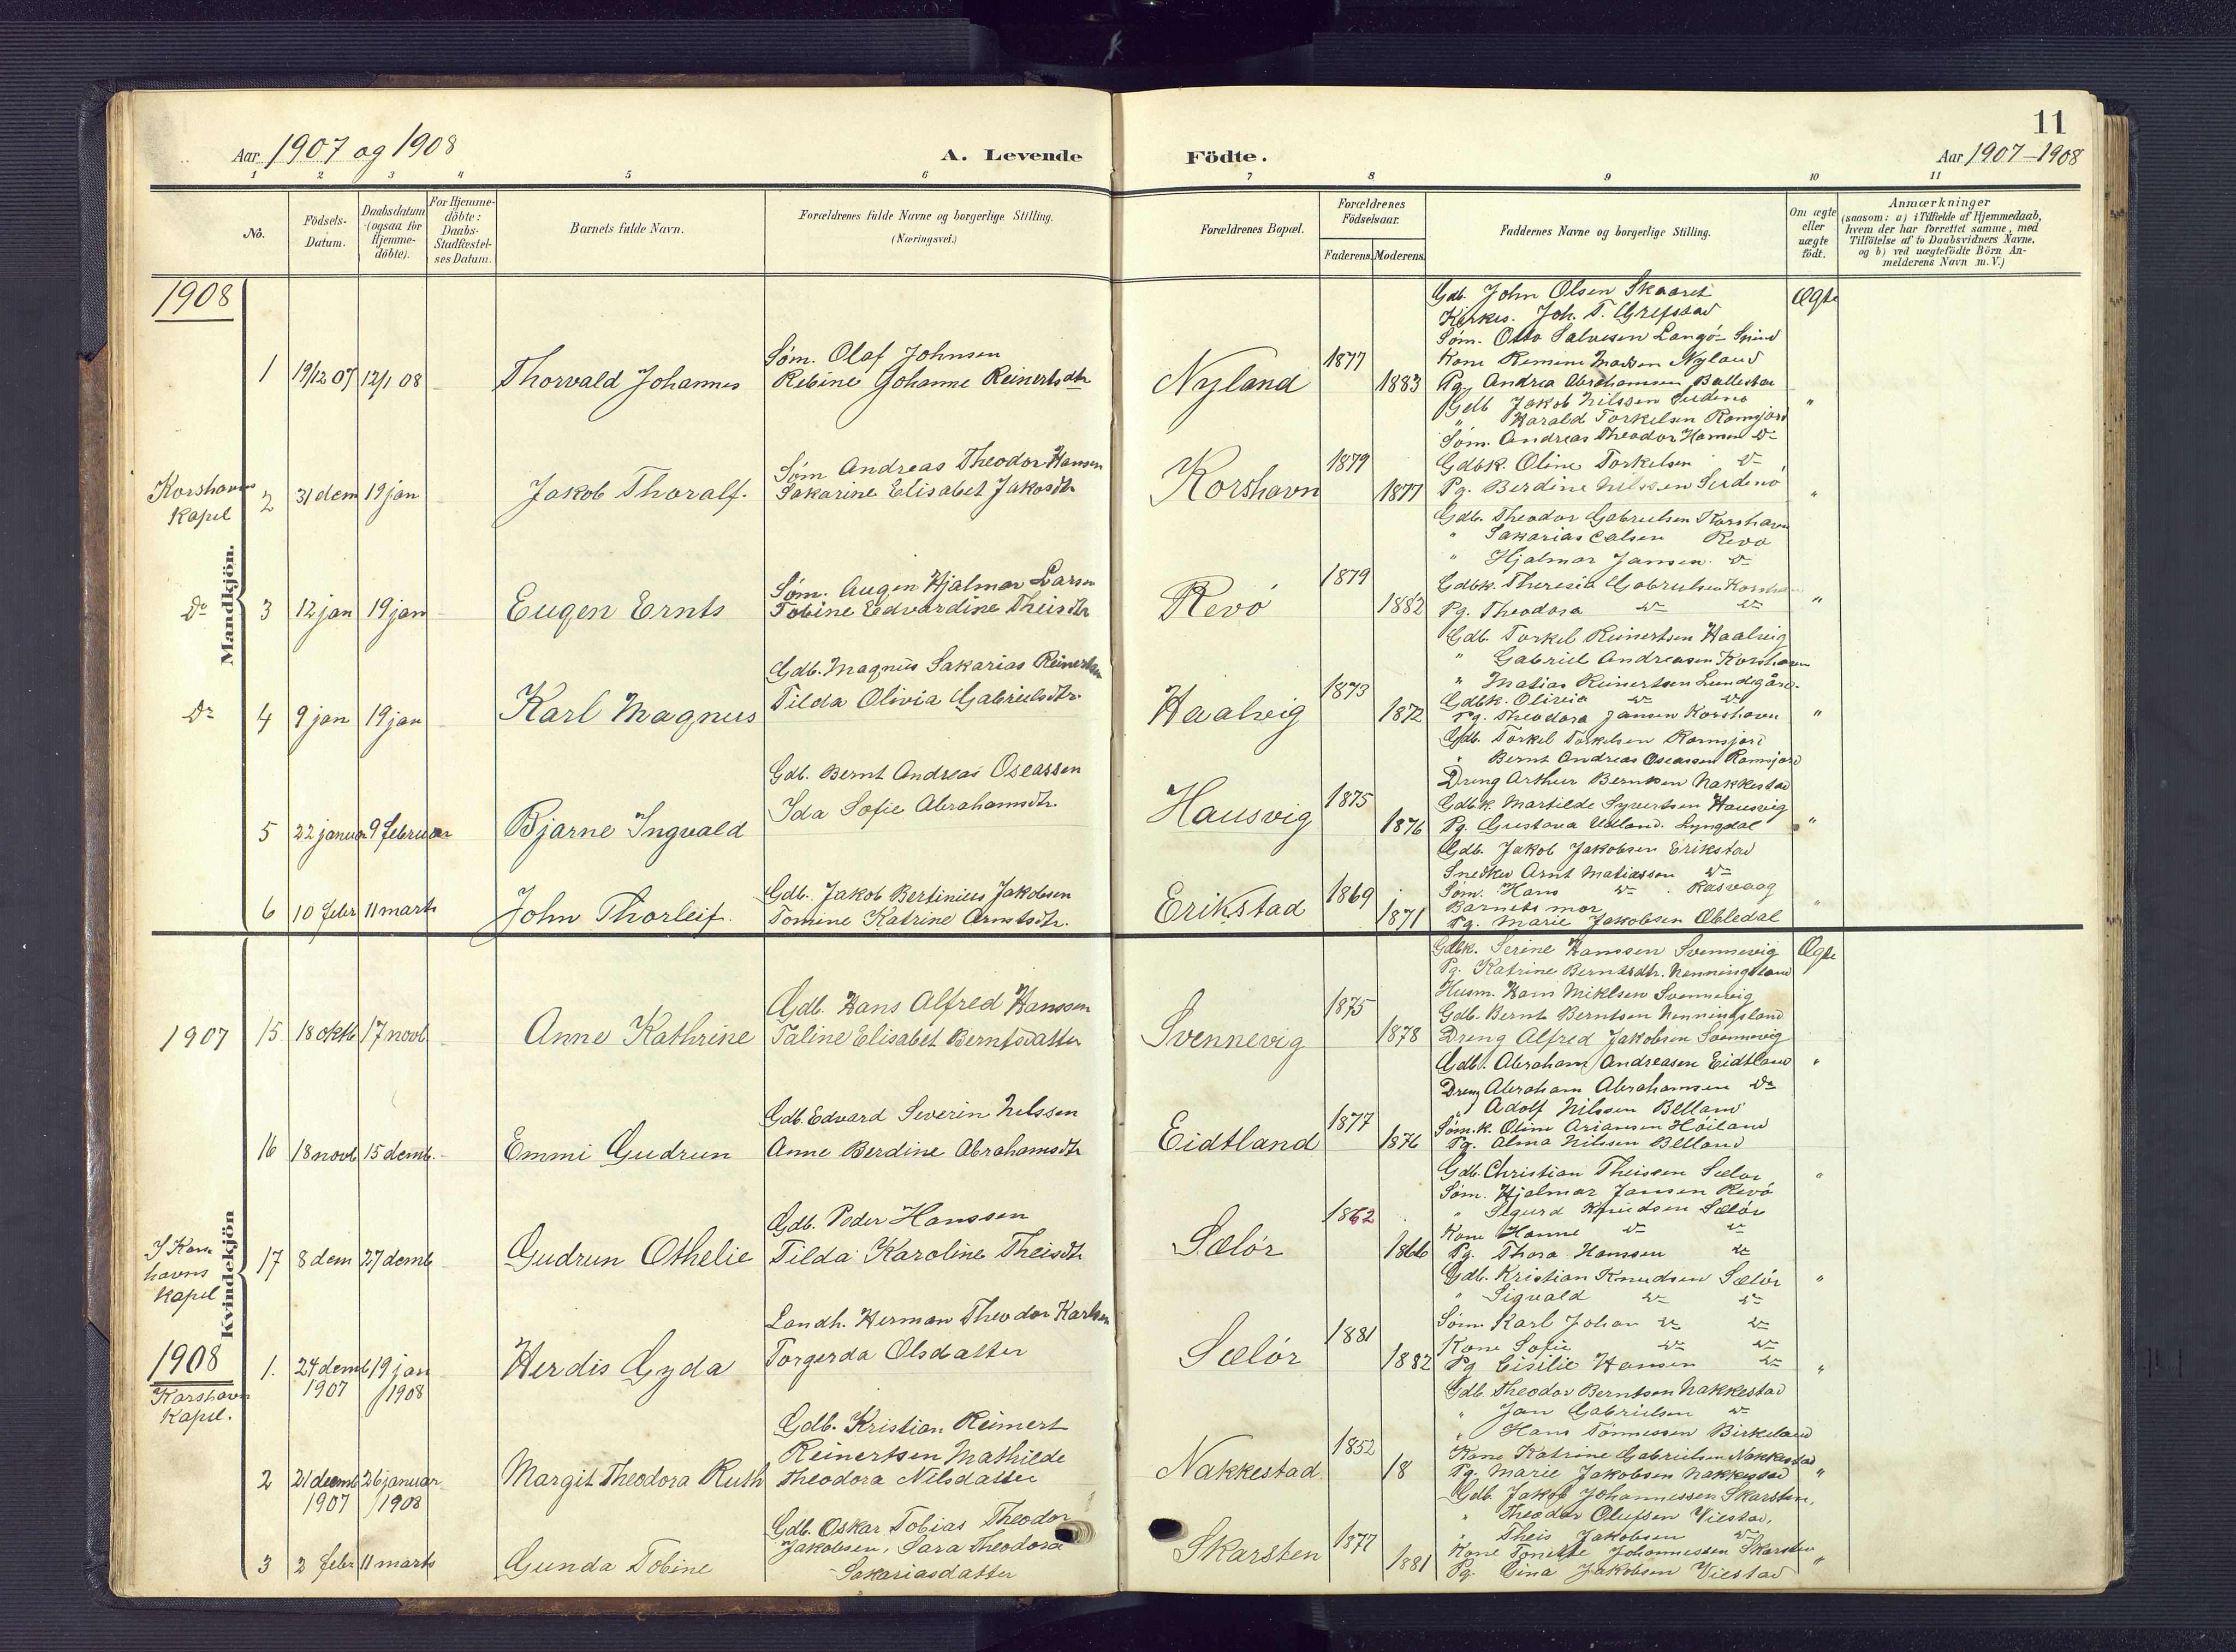 11
Aar 1907 og 1908
A. Levende
Födte.
Aar 1907-1908
1 2 3 4 5 6 7 8 9 10 11
No.
Födsels-
Datum.
Daabsdatum
(ogsaa for
Hjemme-
döbte).
For Hjemme-
döbte:
Daabs-
Stadfæstel-
ses Datum.
Barnets fulde Navn.
Forældrenes fulde Navne og borgerlige Stilling.
(Næringsvei.)
Forældrenes Bopæl.
Forældrenes
Födselsaar.
Faderens. Moderens.
Faddernes Navne og borgerlige Stilling.
Om ægte
eller
uægte
födt.
Anmærkninger
(saasom: a) i Tilfælde af Hjemmedaab,
hvem der har forrettet samme, med
Tilföielse af to Daabsvidners Navne,
og b) ved uægtefödte Börn An-
melderens Navn m. V.)
Mandkjön.
1908
1 19/12 07 12/1 08 Thorvald Johannes
Søm. Olaf Johnsen
Rebine Johanne Reinertsdtr
Nyland 1877 1883
Gdb. John Olsen Skaaret
Kirkes. Joh. T. Grefstad
Søm. Otto Salvesen Langø Spind
Kone Remine Madsen Nyland
Pg. Andrea Abrahamsen Ballestad
Ægte
Korshavns
Kapel
2 31 dem 19 jan Jakob Thoralf.
Søm Andreas Theodor Hansen
Sakarine Elisabet Jakobsdtr
Korshavn 1879 1877
Gdb Jakob Nilssen
" Harald Torkelsen Ramsjord
Søm. Andreas Theodor Hansen Do
Gdbk. Oline Torkelsen Do
Pg. Berdine Nilssen
"
Do 3 12 jan 19 jan Eugen Ernts
Søm. Augen Hjalmar Larsen
Tobine Edvardine Theisdtr
Revø 1879 1882
Gdb. Theodor Gabrielsen Korshavn
" Sakarias Calsen Revø
" Hjalmar Jansen Do
Gdbk. Theresia Gabrielsen Korshavn
Pg. Theodora Do Do
"
Do 4 9 jan 19 jan Karl Magnus
Gdb. Magnus Sakarias Reinertsen
Tilda Olivia Gabrielsdtr.
Haalvig 1873 1872
Gdb. Torkel Reinertsen Haalvig
" Gabriel Andreasen Korshavn
" Matias Reinertsen Lundegård.
Gdbk. Olivia Do Do
Pg. Theodora Jansen Korshavn
"
5 22 januar 9 februar Bjarne Ingvald
Gdb. Bernt Andreas Oseassen
Ida Sofie Abrahamsdtr.
Hausvig 1875 1876
Gdb. Torkel Torkelsen Ramsjord
" Bernt Andreas Oseassen Ramsjord
Dreng Arthur Berntsen Nakkestad
Gdbk. Martilde Syvertsen Hausvig
Pg. Gustava Udland. Lyngdal
"
6 10 febr 11 marts John Thorleif.
Gdb. Jakob Bertinius Jakobsen
Tomine Katrine Arntsdtr.
Erikstad 1869 1871
Gdb. Jakob Jakobsen Erikstad
Snedker Arnt Matiassen Do
Søm. Hans Do Rasvaag
Barnets mor
Pg. Marie Jakobsen Øbledal
"
Kvindekjön
1907 15 18 oktb 17 novb Anne Kathrine
Gdb. Hans Alfred Hanssen
Taline Elisabet Berntsdatter
Svennevig 1875 1878
Gdbk. Serine Hanssen Svennevig
Pg. Katrine Berntsdtr. Henningsland
Husm. Hans Miklsen Svennevig
Gdb. Bernt Berntsen Henningsland
Dreng Alfred Jakobsen Svennevig
Ægte
16 18 novb 15 demb. Emmi Gudrun
Gdb. Edvard Severin Nilssen
Anne Berdine Abrahamsdtr
Eidtland 1877 1876
Gdb. Abraham Andreasen Eidtland
Dreng Abraham Abrahamsen Do
" Adolf Nilssen Belland
Søm.k. Oline Ariansen Høiland
Pg. Alma Nilssen Belland
"
I Kors
havns
Kapel
17 8 dem 27 demb Gudrun Othelie
Gdb. Peder Hanssen
Tilda Karoline Theisdtr
Sælør 1862 1866
Gdb. Christian Theissen Sælør
Søm. Hjalmar Jansen Revø
" Sigurd Knudsen Sælør
Kone Hanne Do Do
Pg. Thora Hanssen Do
"
1908
Korshavn
Kapel.
1. 24 demb 19 jan Herdis Gyda
1907 1908
Landh. Herman Theodor Karlsen
Torgerda Olsdatter
Sælør 1881 1882
Gdb. Kristian Knudsen Sælør
" Sigvald Do Do
Søm Karl Johan Do Do
Kone Sofie Do Do
Pg Cisilie Hansen Do
"
2 21 decemb 26 januar Margit Theodora Ruth
1907 1908
Gdb. Kristian Reimert
Reinertsen Mathilde
Theodora Nilsdatter
Nakkestad. 1852 18
Gdb. Theodor Berntsen Nakkestad
" Jan Gabrielsen Do
" Hans Tønnessen Birkeland
Kone Katrine Gabrielsen Nakkestad
Pg. Marie Jakobsen Nakkestad
"
3 2 febr 11 marts Gunda Tobine
Gdb. Oskar Tobias Theodor
Jakobsen, Sara Theodora
Sakariasdatter
Skarsten 1877 1881
Gdb. Jakob Johannessen Skarsten,
" Theodor Olufsen Viestad,
" Theis Jakobsen Do
Kone Tonette Johannessen Skarsten
Pg. Cina Jakobsen Viestad
"